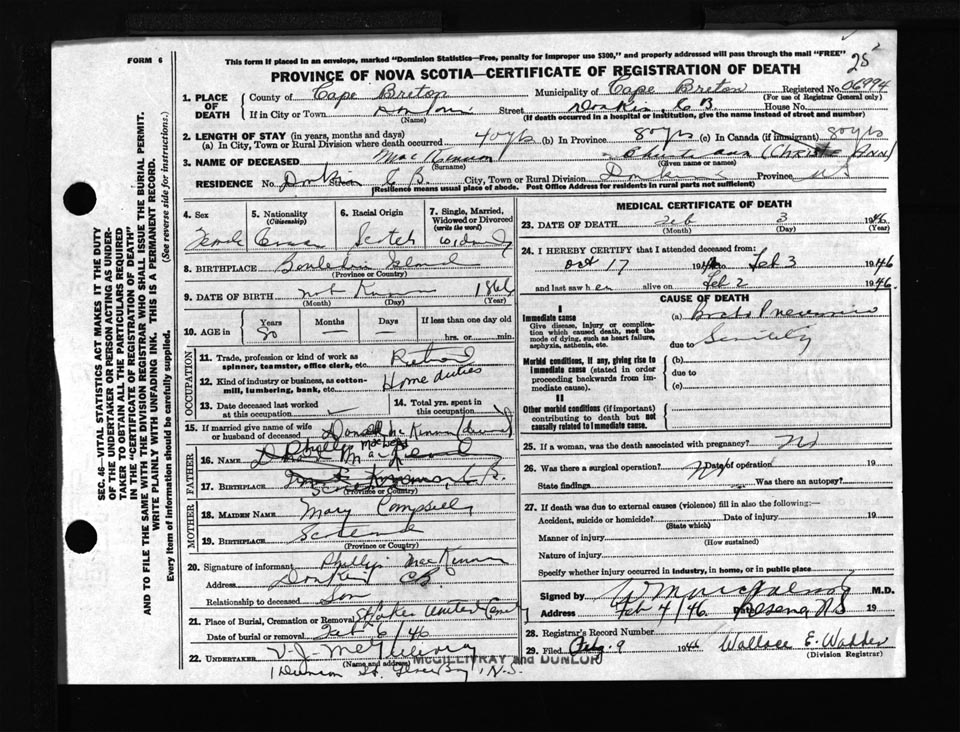 28
FORM 6
This form if placed in an envelope, marked "Dominion Statistics—Free, penalty for improper use $300," and properly addressed will pass through the mail "FREE"
PROVINCE OF NOVA SCOTIA—CERTIFICATE OF REGISTRATION OF DEATH
SEC. 46—VITAL STATISTICS ACT MAKES IT THE DUTY
OF THE UNDERTAKER OR PERSON ACTING AS UNDER-
TAKER TO OBTAIN ALL THE PARTICULARS REQUIRED
IN THE "CERTIFICATE OF REGISTRATION OF DEATH"
AND TO FILE THE SAME WITH THE DIVISION REGISTRAR WHO SHALL ISSUE THE BURIAL PERMIT.
WRITE PLAINLY WITH UNFADING INK. THIS IS A PERMANENT RECORD.
Every item of information should be carefully supplied. (See reverse side for instructions.)
1. PLACE OF DEATH
County of Cape Breton Municipality of Cape Breton Registered No. 06994
(For use of Registrar General only)
If in City or Town Street Donkin C B House No.
(Name) (If death occurred in a hospital or institution, give the name instead of street and number)
2. LENGTH OF STAY (in years, months and days)
(a) In City, Town or Rural Division where death occurred 40 yrs (b) In Province 80 yrs (c) In Canada (if immigrant) 80 yrs
3. NAME OF DECEASED MacKinnon Christiann (CHRISTE ANN)
(Surname) (Given name or names)
RESIDENCE No. Donkin Street C B. City, Town or Rural Division Donkin Province NS
(Residence means usual place of abode. Post Office Address for residents in rural parts not sufficient)
4. Sex Female
5. Nationality (Citizenship)
6. Racial Origin Scotch
7. Single, Married, Widowed or Divorced (write the word) Widow
8. BIRTHPLACE Boularderie Island
(Province or Country)
9. DATE OF BIRTH not Known 1866
(Month) (Day) (Year)
10. AGE in Years Months Days If less than one day old
80 — hrs. or min.
OCCUPATION
11. Trade, profession or kind of work as spinner, teamster, office clerk, etc. Retired
12. Kind of industry or business, as cotton-mill, lumbering, bank, etc. Home duties
13. Date deceased last worked at this occupation
14. Total yrs. spent in this occupation
15. If married give name of wife or husband of deceased Donald McKinnon
FATHER
16. NAME Phillip MacLeod
17. BIRTHPLACE C.B.
(Province or Country)
MOTHER
18. MAIDEN NAME Mary Campbell
19. BIRTHPLACE
(Province or Country)
20. Signature of informant Phillip MacKinnon
Address Donkin CB.
Relationship to deceased Son
21. Place of Burial, Cremation or Removal United
Date of burial or removal Feb 6/46
22. UNDERTAKER V-J-McGillivray
(Name and address) McGILLIVRAY and DUNLOP
1 Dunlop St. Glace Bay, N.S.
MEDICAL CERTIFICATE OF DEATH
23. DATE OF DEATH Feb 3 1946
(Month) (Day) (Year)
24. I HEREBY CERTIFY that I attended deceased from:
Oct 17 194 to Feb 3 1946
and last saw her alive on Feb 2 1946.
CAUSE OF DEATH
Immediate cause
Give disease, injury or complication which caused death, not the mode of dying, such as heart failure, asphyxia, asthenia, etc.
(a) Broncho Pneumonia
due to Senility
Morbid conditions, if any, giving rise to immediate cause (stated in order proceeding backwards from immediate cause).
(b)
due to
(c)
II
Other morbid conditions (if important) contributing to death but not causally related to immediate cause.
25. If a woman, was the death associated with pregnancy? No
26. Was there a surgical operation? No Date of operation 19
State findings Was there an autopsy?
27. If death was due to external causes (violence) fill in also the following:—
Accident, suicide or homicide? Date of injury 19
(State which)
Manner of injury
(How sustained)
Nature of injury
Specify whether injury occurred in industry, in home, or in public place
Signed by M.D.
Address Feb 4/46 Date NS 19
28. Registrar's Record Number
29. Filed Feb. 9 1946 Wallace E. Wadden
(Division Registrar)